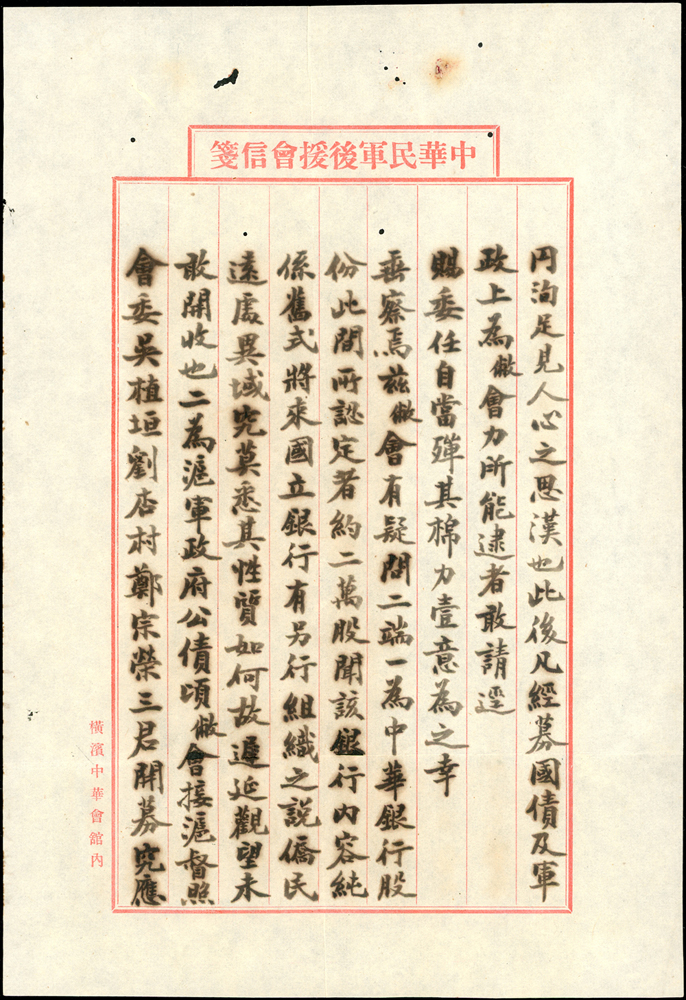 中華民軍後援會信箋
円洵足見人心之思漢也此後凡經募國債及軍
政上為敝會力所能逮者敢請逕
賜委任自當殫其棉力壹意為之幸
垂察焉茲敝會有疑問二端一為中華銀行股
份此間所認定者約二萬股聞該銀行內容純
係舊式將來國立銀行有另行組織之說僑民
遠處異域究莫悉其性質如何故遲延觀望未
敢開收也二為滬軍政府公債頃敝會接滬督照
會委吳植垣劉杏村鄭宗榮三君開募究應
橫濱中華會館內